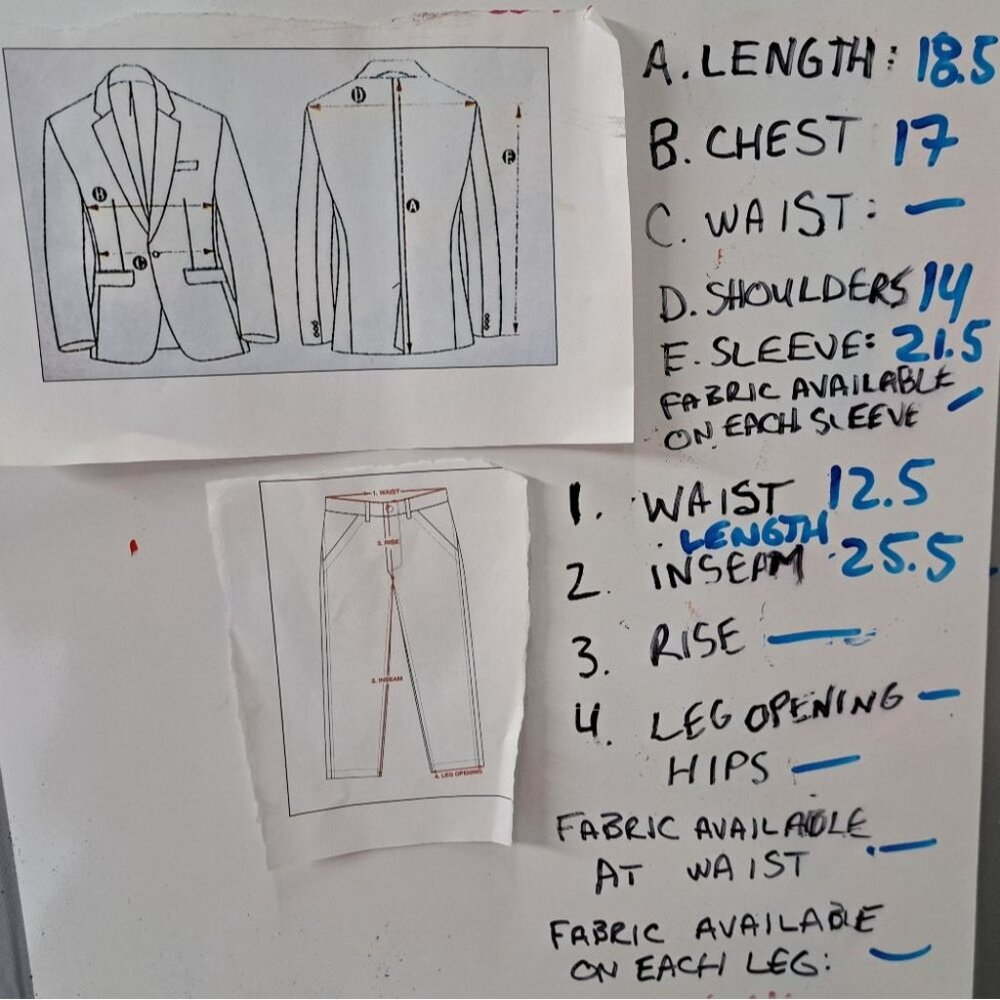 A. LENGTH: 18.5
B. CHEST 17
C. WAIST: —
D. SHOULDERS 14
E. SLEEVE: 21.5
FABRIC AVAILABLE
ON EACH SLEEVE —
D
A
1. WAIST
3. RISE
2. INSEAM
4. LEG OPENING
1. WAIST 12.5
LENGTH
2. INSEAM 25.5
3. RISE —
4. LEG OPENING —
HIPS —
FABRIC AVAILABLE
AT WAIST —
FABRIC AVAILABLE
ON EACH LEG: —